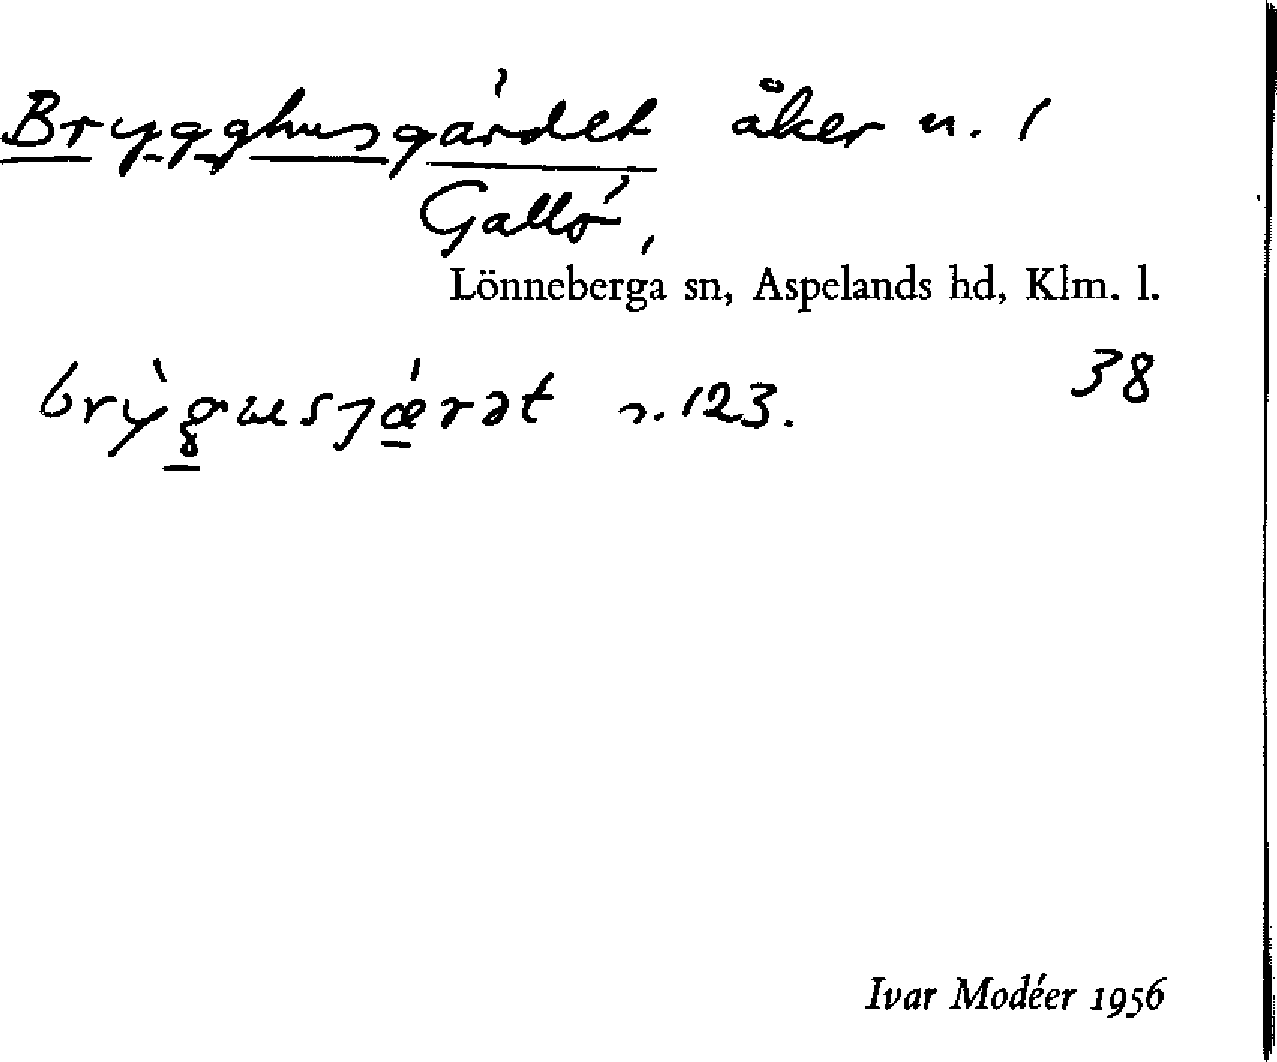 Brygghusgärdet åker n. 1
Gallö,
Lönneberga sn, Aspelands hd, Klm. l.
38
n. 123.
Ivar Modéer 1956